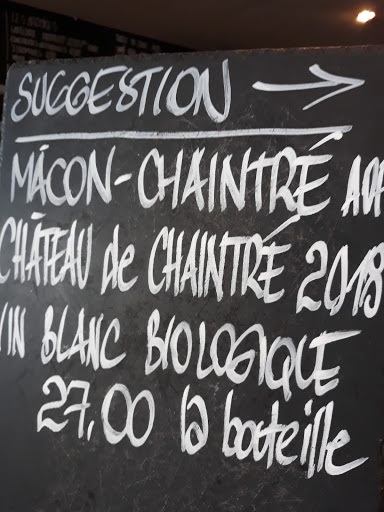 SUGGESTION →
MÂCON-CHAINTRÉ
CHÂTEAU de CHAINTRÉ 2018
VIN BLANC BIOLOGIQUE
27.00 la bouteille